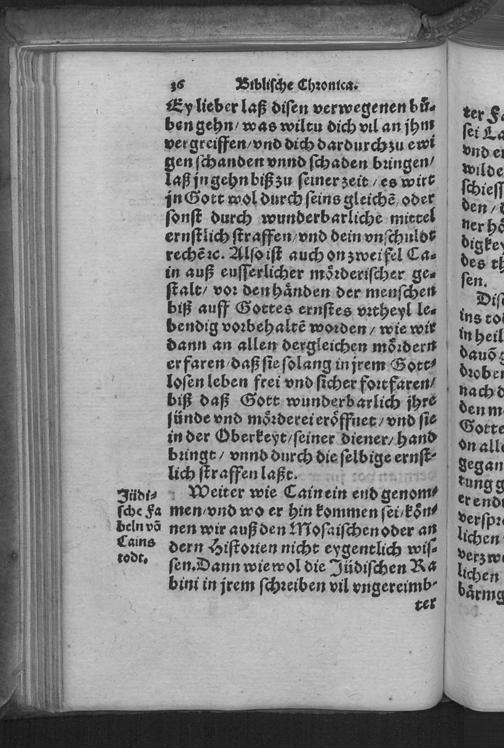 36 Biblische Chronica.
Ey lieber laß disen verwegenen bů-
ben gehn/ was wiltu dich vil an jhm
vergreiffen/ vnd dich dardurch zu ewi
gen schanden vnnd schaden bringen/
laß jn gehn biß zu seiner zeit / es wirt
jn Gott wol durch seins gleichē, oder
sonst durch wunderbarliche mittel
ernstlich straffen/ vnd dein vnschuldt
rechēꝛc. Also ist auch on zweifel Ca-
in auß eusserlicher mörderischer ge-
stalt/ vor den händen der menschen
biß auff Gottes ernstes vrtheyl le-
bendig vorbehaltē worden / wie wir
dann an allen dergleichen mördern
erfaren/ daß sie solang in jrem Gott-
losen leben frei vnd sicher fortfaren/
biß daß Gott wunderbarlich jhre
sünde vnd mörderei eröffnet / vnd sie
in der Oberkeyt/ seiner diener/ hand
bringt/ vnnd durch die selbige ernst-
lich straffen laßt.
Weiter wie Cain ein end genom-
men/ vnd wo er hin kommen sei/ kön-
nen wir auß den Mosaischen oder an
dern Historien nicht eygentlich wis-
sen. Dann wiewol die Jüdischen Ra
bini in jrem schreiben vil vngereimb-
ter
Jüdi-
sche Fa
beln vō
Cains
todt.
ter Fa
sei
vnd
wilde
schiess
den /
ner
digkey
des
sen.
ins
in heil
dauō
drober
nach
den
Gotte
on alle
gegan
tung
er
verspr
lichen
verzw
lichen
bärmg